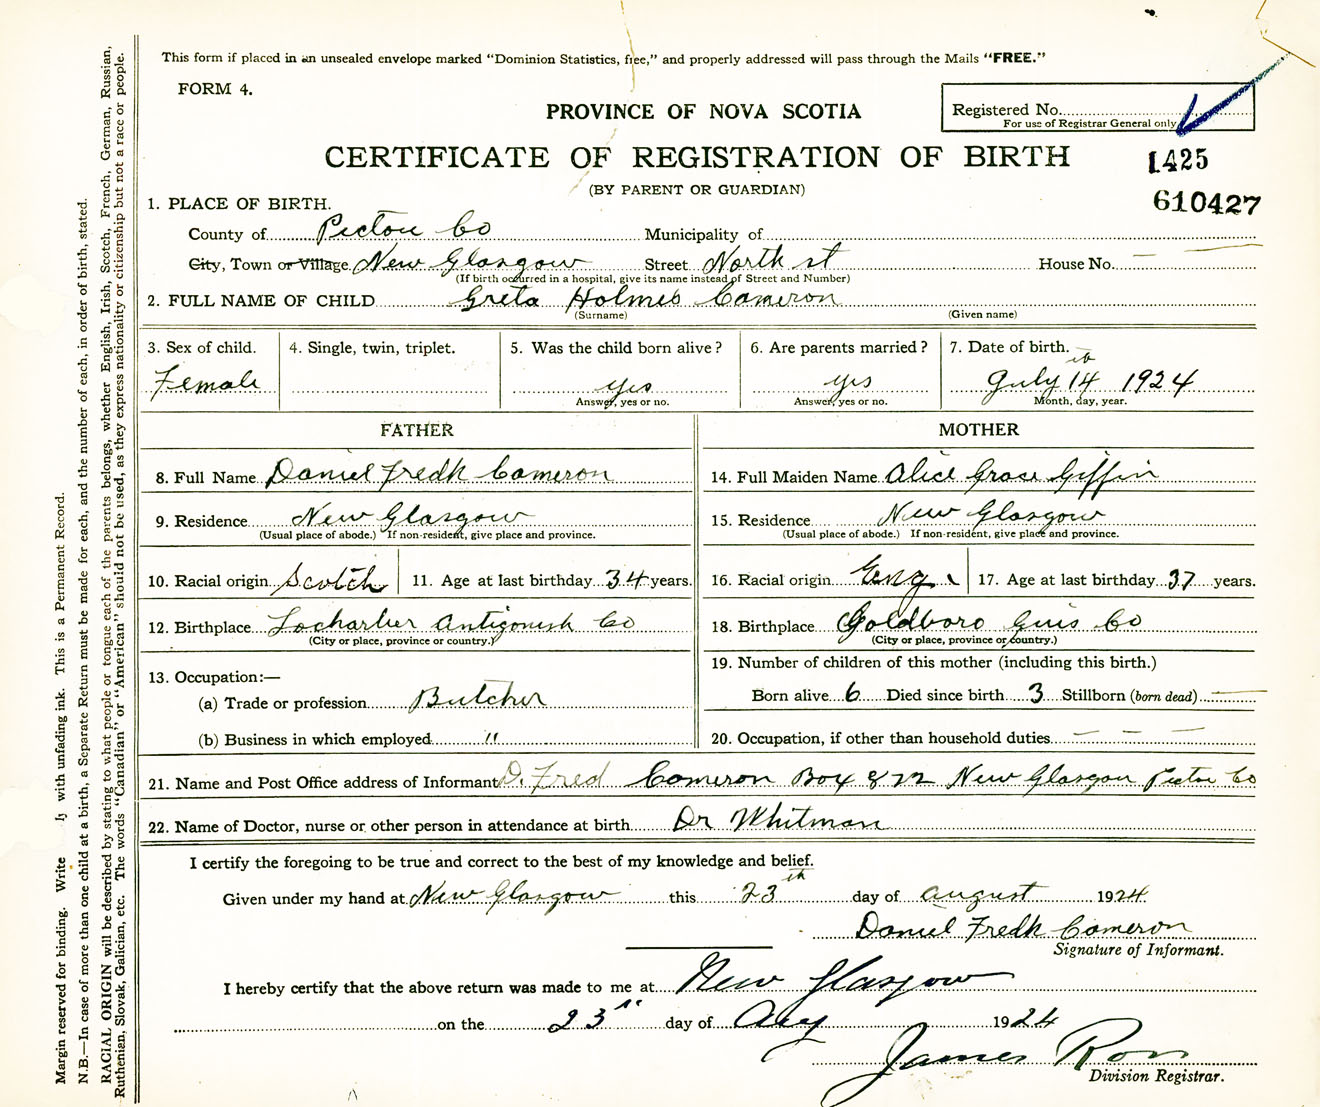 This form if placed in an unsealed envelope marked "Dominion Statistics, free," and properly addressed will pass through the Mails "FREE."
FORM 4.
PROVINCE OF NOVA SCOTIA
Registered No.
For use of Registrar General only
CERTIFICATE OF REGISTRATION OF BIRTH
1425
(BY PARENT OR GUARDIAN)
610427
1. PLACE OF BIRTH.
County of Pictou Co Municipality of
City, Town or Village New Glasgow Street North st House No. —
(If birth occurred in a hospital, give its name instead of Street and Number)
2. FULL NAME OF CHILD Greta Holmes Cameron
(Surname) (Given name)
3. Sex of child. 4. Single, twin, triplet. 5. Was the child born alive? 6. Are parents married? 7. Date of birth.
Female yes yes July 14th 1924
Answer, yes or no. Answer, yes or no. Month, day, year.
FATHER MOTHER
8. Full Name Daniel Fredk Cameron 14. Full Maiden Name Alice Grace Giffin
9. Residence New Glasgow 15. Residence New Glasgow
(Usual place of abode.) If non-resident, give place and province. (Usual place of abode.) If non-resident, give place and province.
10. Racial origin Scotch 11. Age at last birthday 34 years. 16. Racial origin Eng. 17. Age at last birthday 37 years.
12. Birthplace Locharber Antigonish Co 18. Birthplace Goldboro Guis Co
(City or place, province or country.) (City or place, province or country.)
19. Number of children of this mother (including this birth.)
13. Occupation:—
(a) Trade or profession Butcher Born alive 6 Died since birth 3 Stillborn (born dead) —
(b) Business in which employed " 20. Occupation, if other than household duties — — —
21. Name and Post Office address of Informant D. Fred Cameron Box 822 New Glasgow Pictou Co
22. Name of Doctor, nurse or other person in attendance at birth Dr Whitman
I certify the foregoing to be true and correct to the best of my knowledge and belief.
Given under my hand at New Glasgow this 23th day of august 1924
Daniel Fredk Cameron
Signature of Informant.
I hereby certify that the above return was made to me at New Glasgow
on the 23 day of Aug 1924
James Ross
Division Registrar.
Margin reserved for binding. Write with unfading ink. This is a Permanent Record.
N.B.—In case of more than one child at a birth, a Separate Return must be made for each, and the number of each, in order of birth, stated.
RACIAL ORIGIN will be described by stating to what people or tongue each of the parents belongs, whether English, Irish, Scotch, French, German, Russian,
Ruthenian, Slovak, Galician, etc. The words "Canadian" or "American" should not be used, as they express nationality or citizenship but not a race or people.